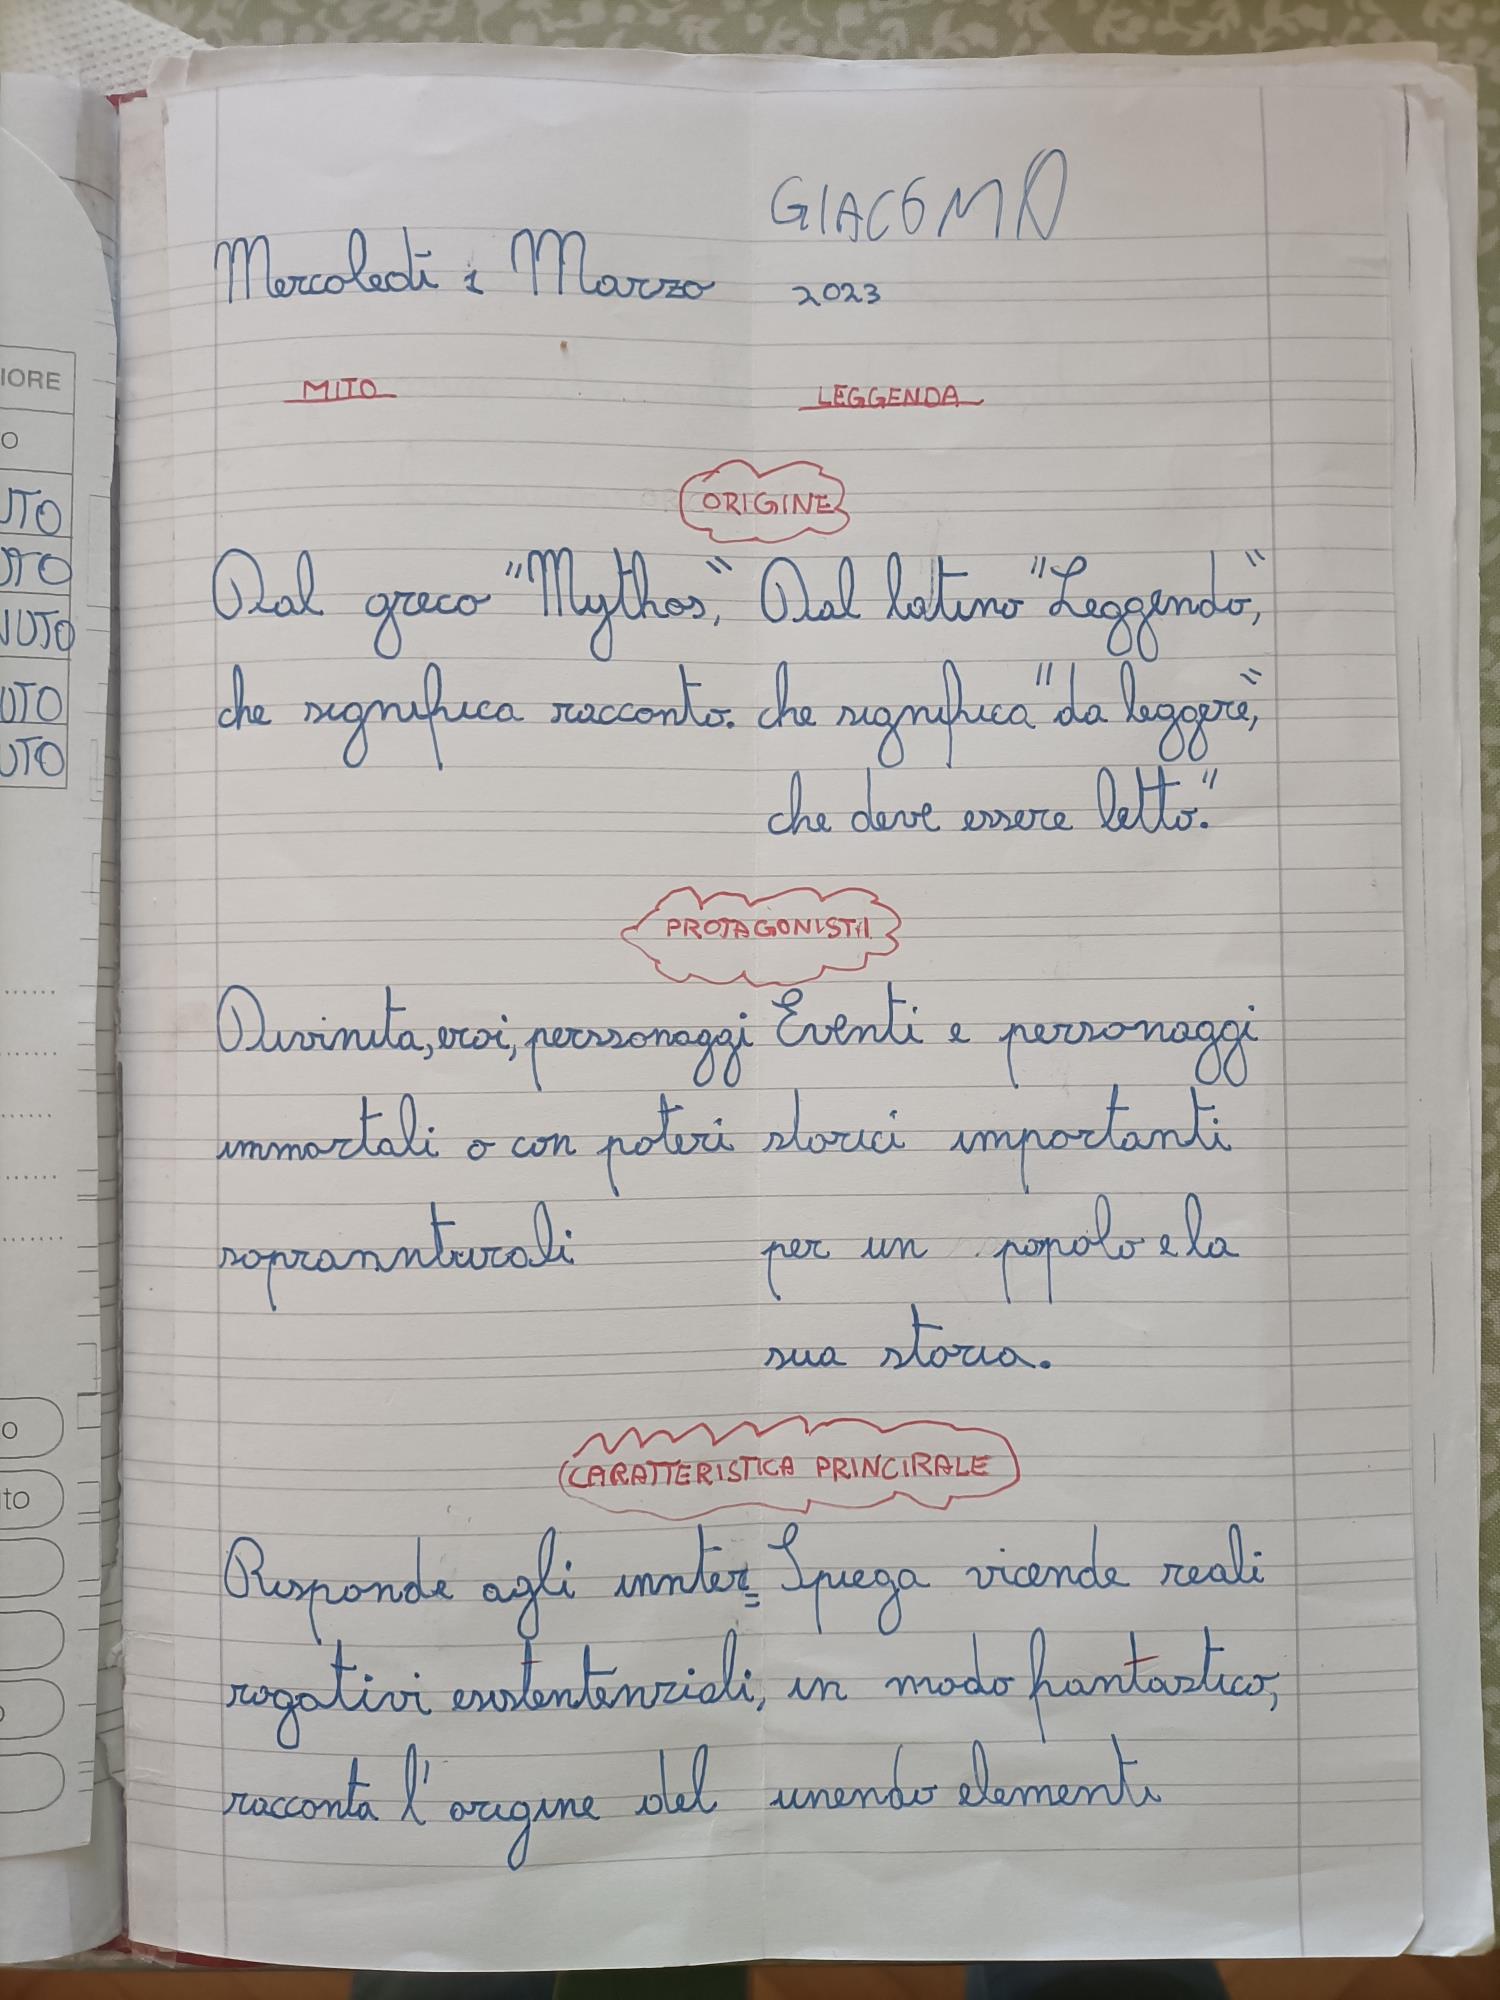 GIACOMO
Mercoledì 1 Marzo 2023
MITO LEGGENDA
ORIGINE
Dal greco "Mythos", Dal latino "Leggendo",
che significa racconto. che significa "da leggere",
che deve essere letto."
PROTAGONISTI
Divinita, eroi, perssonaggi Eventi e personaggi
immortali o con poteri storici importanti
soprannturali per un popolo e la
sua storia.
CARATTERISTICA PRINCIPALE
Risponde agli innter= Spiega vicende reali
rogativi esistentenziali, in modo fantastico,
racconta l'origine del unendo elementi
IORE
O
UTO
UTO
NUTO
UTO
UTO
o
to